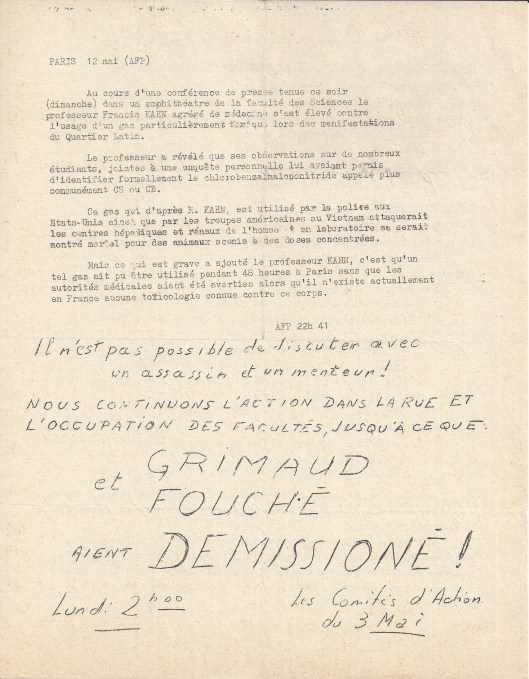 PARIS 12 mai (AFP)
Au cours d'une conférence de presse tenue ce soir
(dimanche) dans un amphithéatre de la faculté des Sciences le
professeur Francis KAHN agrégé de médecine s'est élevé contre
l'usage d'un gaz particulièrement toxique lors des manifestations
du Quartier Latin.
Le professeur a révélé que ses observations sur de nombreux
étudiants, jointes à une enquête personnelle lui avaient permis
d'identifier formellement le chlorobenzalmalononitride appelé plus
communément CS ou CB.
Ce gaz qui d'après M. KAHN, est utilisé par la police aux
Etats-Unis ainsi que par les troupes américaines au Vietnam attaquerait
les centres hépatiques et rénaux de l'homme et en laboratoire se serait
montré mortel pour des animaux soumis à des doses concentrées.
Mais ce qui est grave a ajouté le professeur KAHN, c'est qu'un
tel gaz ait pu être utilisé pendant 48 heures à Paris sans que les
autorités médicales aient été averties alors qu'il n'existe actuellement
en France aucune toxicologie connue contre ce corps.
AFP 22h 41
Il n'est pas possible de discuter avec
un assassin et un menteur !
NOUS CONTINUONS L'ACTION DANS LA RUE ET
L'OCCUPATION DES FACULTÉS, JUSQU'À CE QUE :
GRIMAUD
et FOUCHÉ
AIENT DEMISSIONÉ !
Lundi 2h00
Les Comités d'Action
du 3 Mai